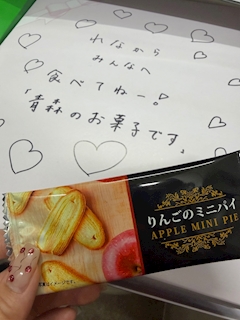 れなから
みんなへ
食べてねー!
青森のお菓子です。
りんごのミニパイ
APPLE MINI PIE